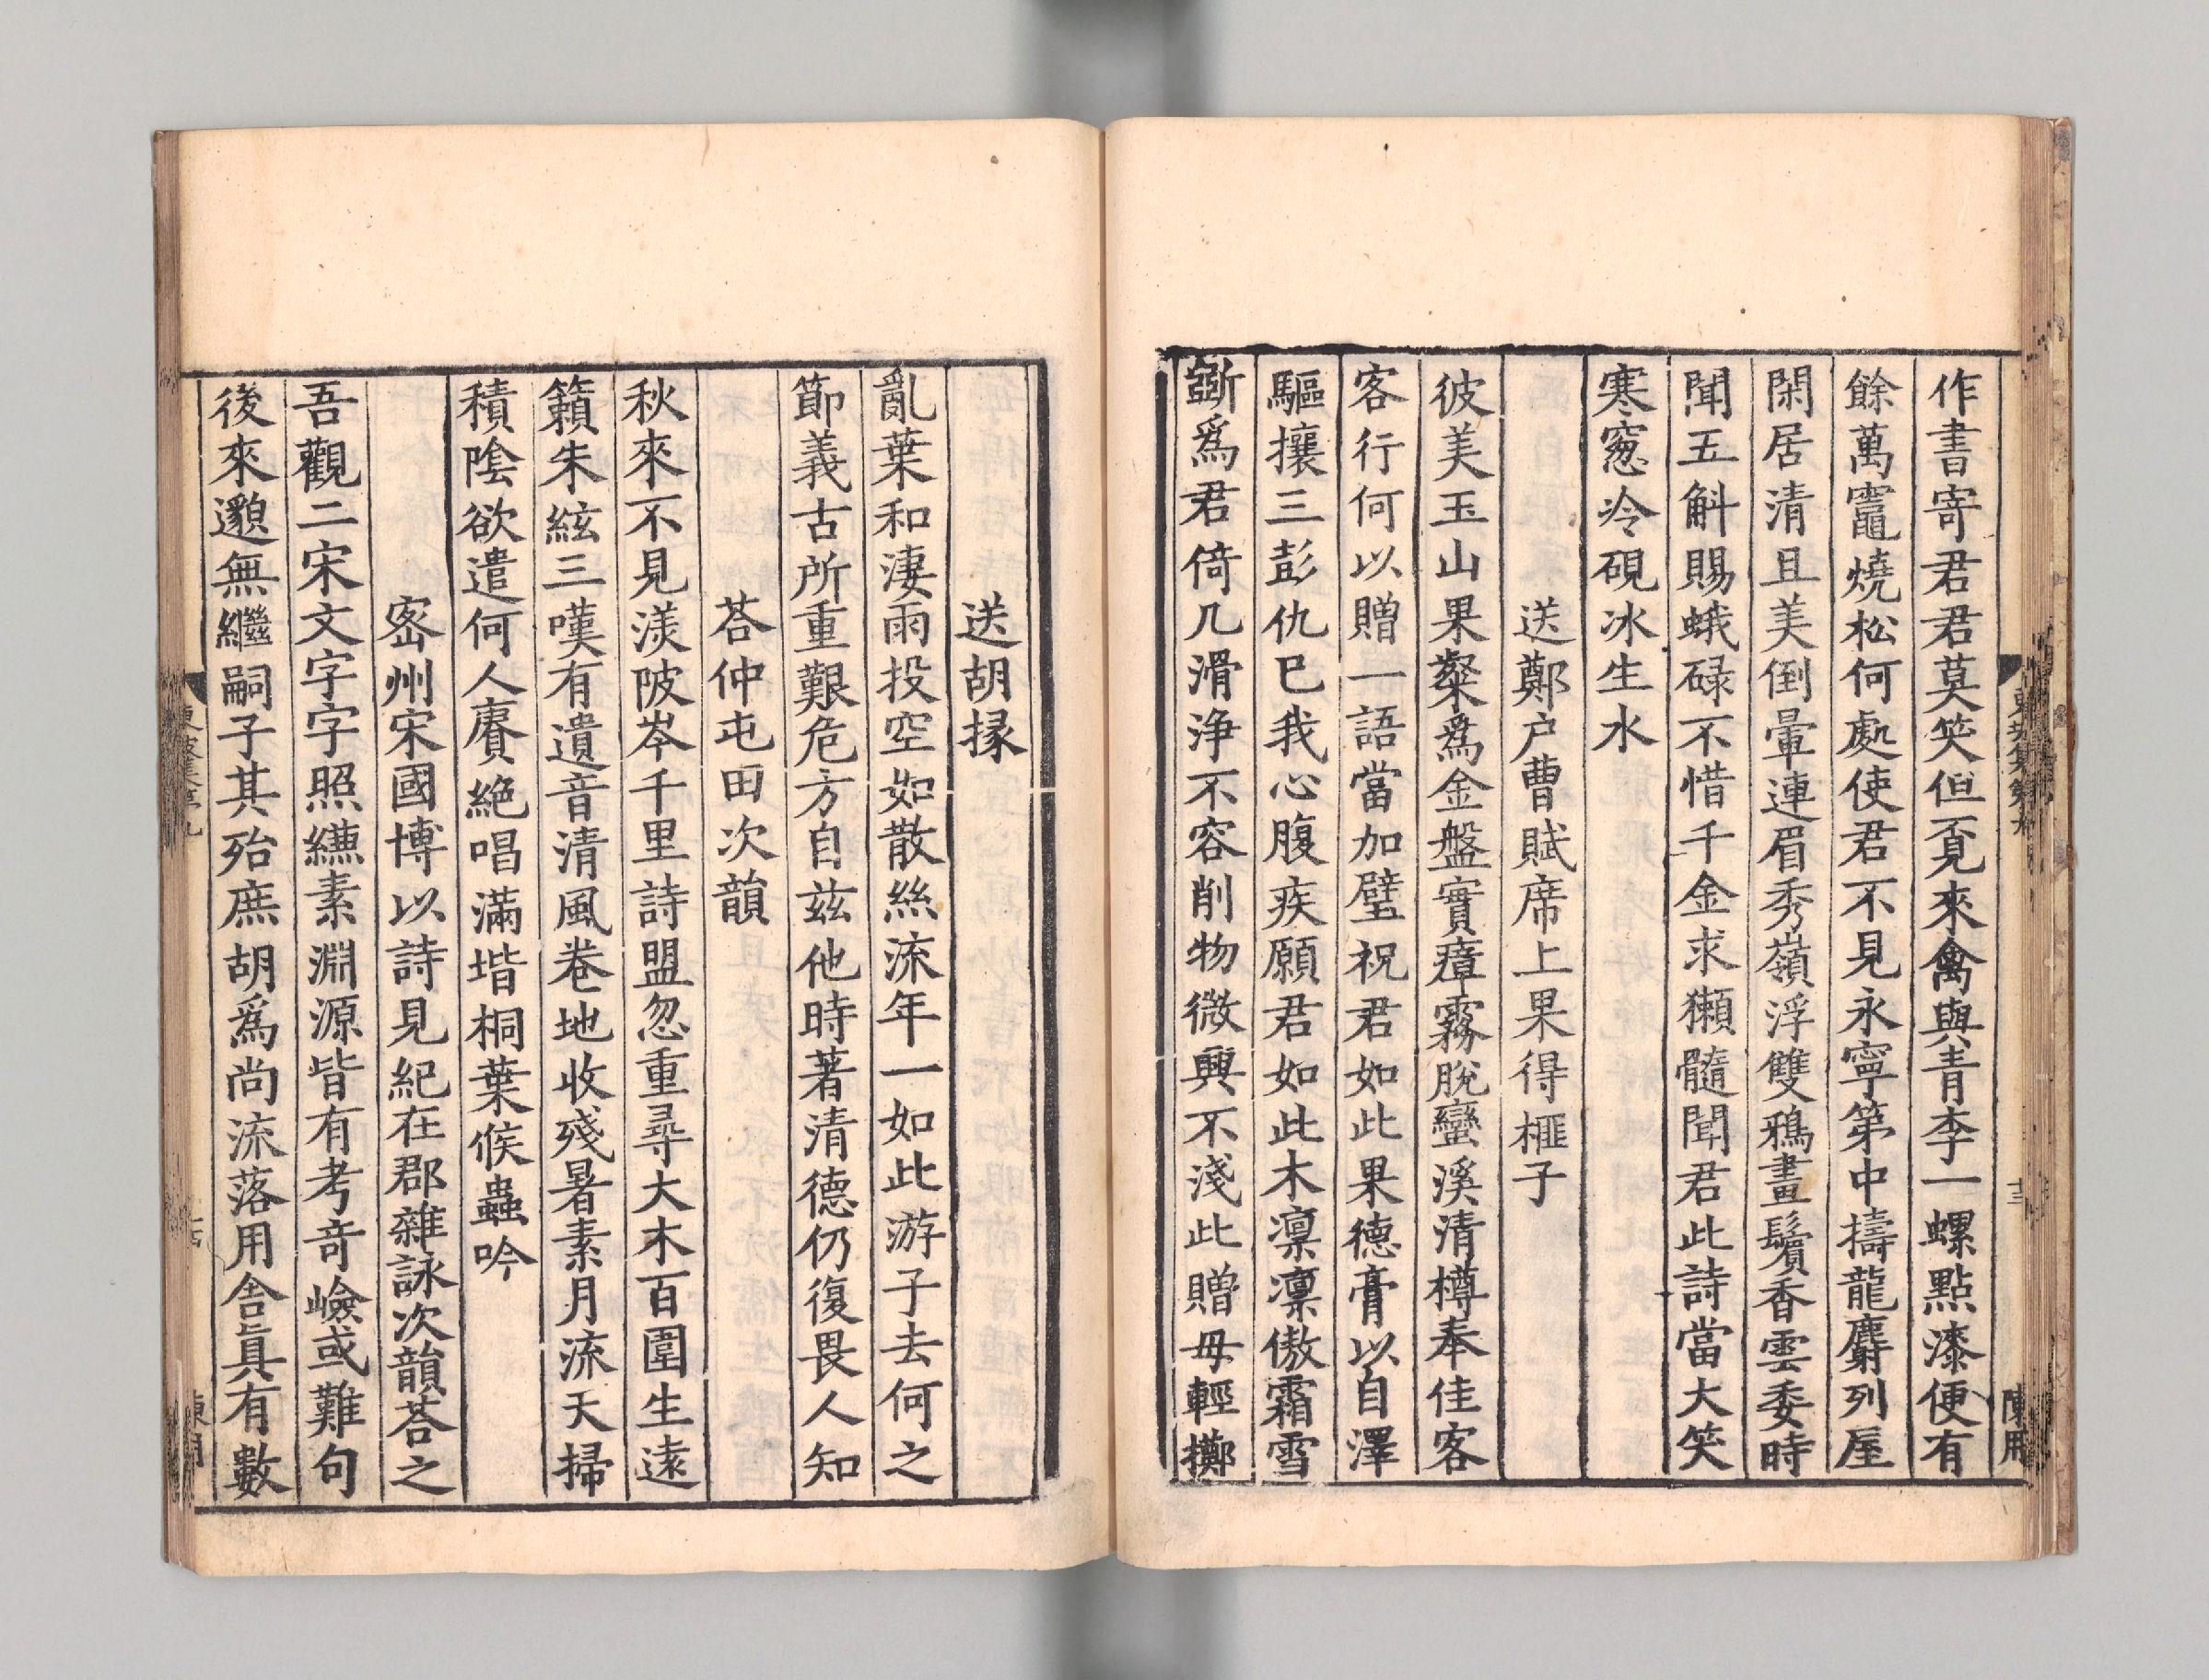 作書寄君君莫笑但覔來禽與青李一螺點漆便有
餘萬竈燒松何處使君不見永寧第中擣龍麝列屋
閑居清且美倒暈連眉秀嶺浮雙鴉畫鬢香雲委時
聞五斛賜蛾碌不惜千金求獺髓聞君此詩當大笑
寒窓冷硯冰生水
送鄭户曹賦席上果得榧子
彼美玉山果粲爲金盤實瘴霧脫蠻溪清樽奉佳客
客行何以贈一語當加璧祝君如此果德膏以自澤
驅攘三彭仇已我心腹疾願君如此木凛凛傲霜雪
斲爲君倚几滑淨不容削物微興不淺此贈毋輕擲
送胡掾
亂葉和淒雨投空如散絲流年一如此游子去何之
節義古所重艱危方自兹他時著清德仍復畏人知
荅仲屯田次韻
秋來不見渼陂岑千里詩盟忽重尋大木百圍生遠
籟朱絃三嘆有遺音清風卷地收殘暑素月流天掃
積隂欲遣何人賡絶唱滿堦桐葉候蟲吟
宻州宋國博以詩見紀在郡雜詠次韻荅之
吾觀二宋文字字照縑素淵源皆有考竒嶮或難句
後來邈無繼嗣子其殆庶胡爲尚流落用舍眞有數
東坡集第九
陳用